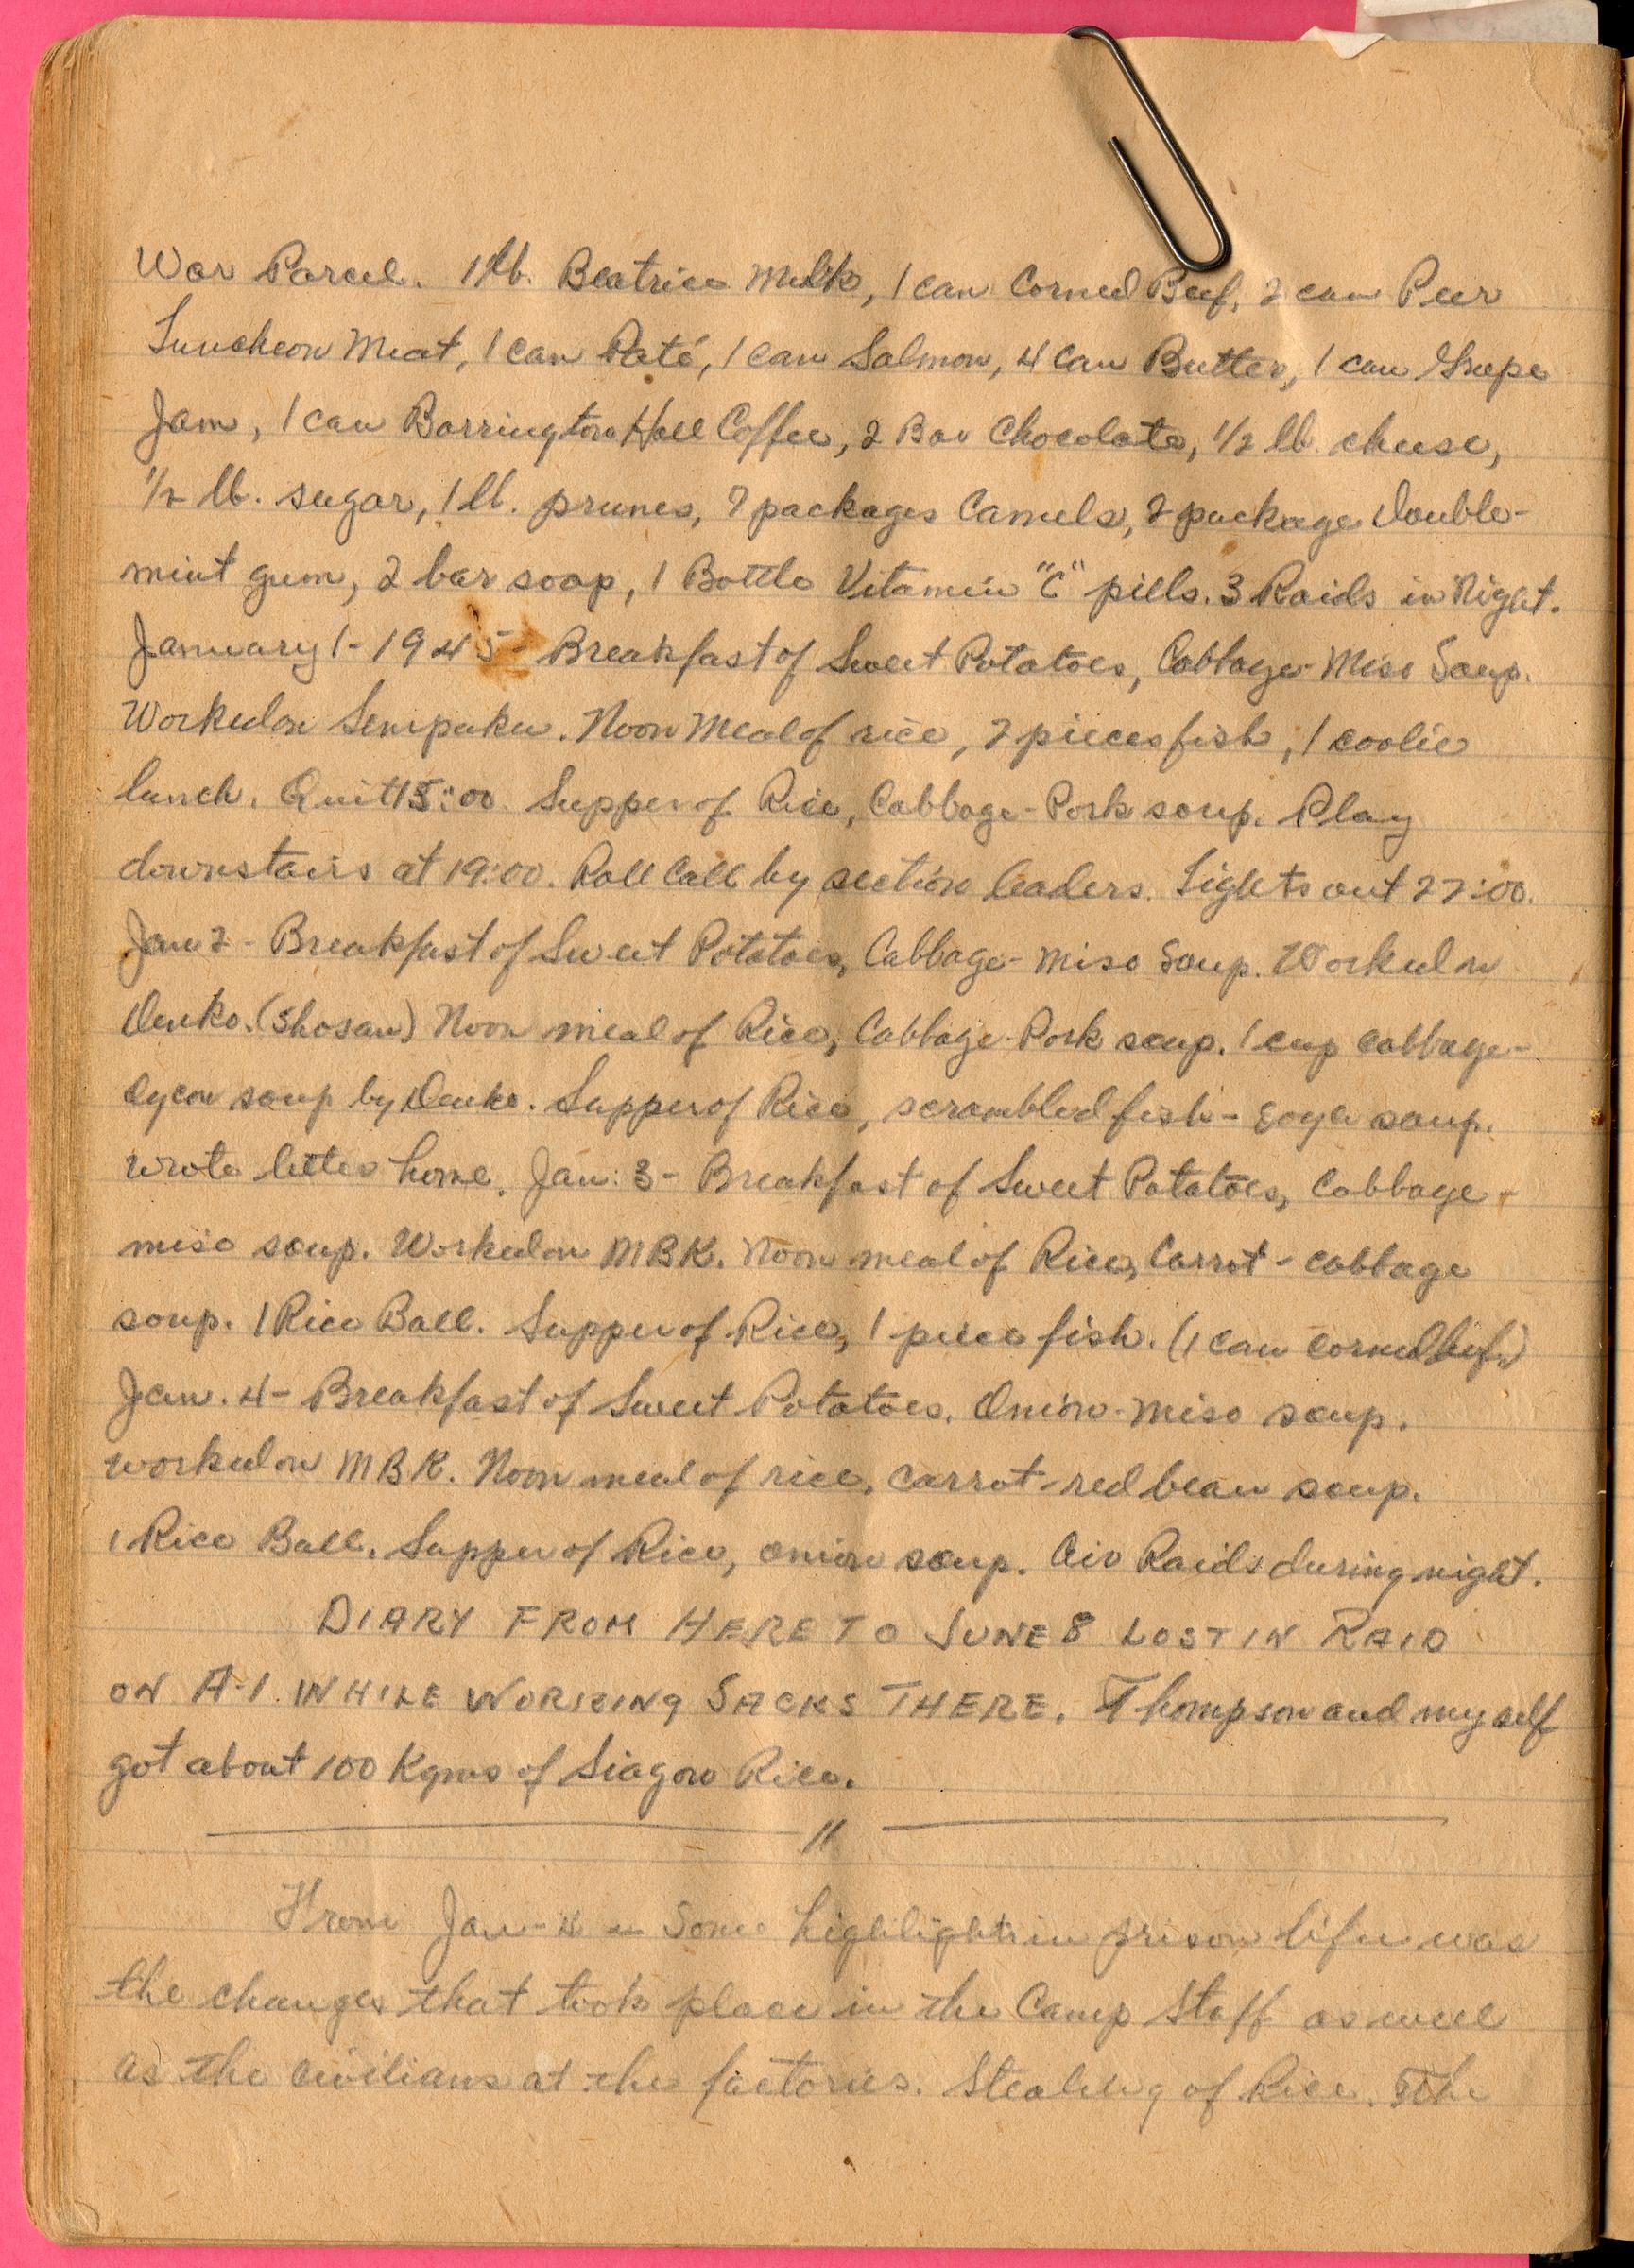 War Parcel. 1 lb. Beatrice Milk, 1 can Corned Beef, 2 can Peer
Luncheon Meat, 1 can Paté, 1 can Salmon, 4 can Butter, 1 can Grape
Jam, 1 can Barrington Hall Coffee, 2 Bar Chocolate, 1/2 lb. cheese,
1/2 lb. sugar, 1 lb. prunes, 7 packages Camels, 2 package Double-
mint gum, 2 bar soap, 1 Bottle Vitamin "C" pills. 3 Raids in Night.
January 1 - 1945 - Breakfast of Sweet Potatoes, Cabbage - Miso Soup.
Worked on Senpaku. Noon Meal of rice, 2 pieces fish, 1 coolie
lunch. Quit 15:00. Supper of Rice, Cabbage - Pork soup. Play
downstairs at 19:00. Roll Call by section leaders. Lights out 22:00.
Jan 2 - Breakfast of Sweet Potatoes, Cabbage - Miso Soup. Worked on
Denko. (Shosan) Noon meal of Rice, Cabbage - Pork soup. 1 cup cabbage -
Dycon soup by Denko. Supper of Rice, scrambled fish - Soya soup.
Wrote letter home. Jan. 3 - Breakfast of Sweet Potatoes, Cabbage -
miso soup. Worked on MBK. Noon meal of Rice, Carrot - cabbage
soup. 1 Rice Ball. Supper of Rice, 1 piece fish. (1 can corned beef)
Jan. 4 - Breakfast of Sweet Potatoes, Onion - Miso soup.
worked on MBK. Noon meal of rice, carrot - red bean soup.
1 Rice Ball. Supper of Rice, onion soup. Air Raids during night.
DIARY FROM HERE TO JUNE 8 LOST IN RAID
ON A-1. WHILE WORKING SACKS THERE. Thompson and myself
got about 100 Kgms of Siagon Rice.
"
From Jan - 4 - Some highlights in prison life was
the changes that took place in the Camp Staff as well
as the civilians at the factories. Stealing of Rice. The